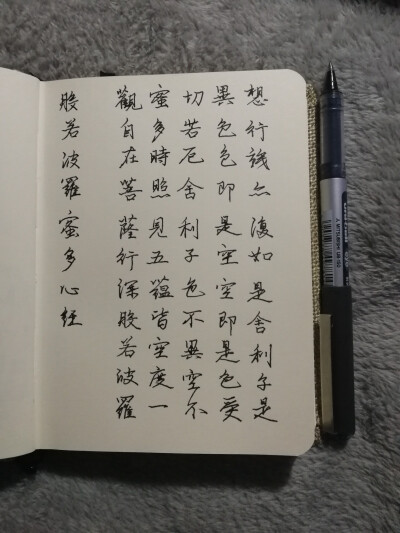 般若波羅蜜多心經
觀自在菩薩行深般若波羅
蜜多時照見五蘊皆空度一
切苦厄舍利子色不異空不
異色色即是空空即是色受
想行識亦復如是舍利子是